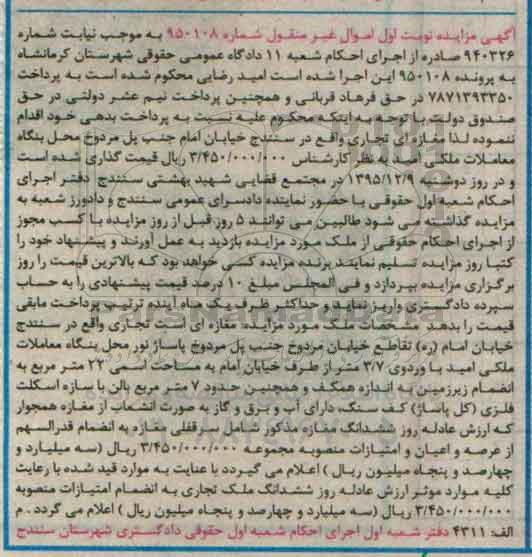 آگهی مزایده نوبت اول اموال غیر منقول شماره ۹۵۰۱۰۸ به موجب نیابت شماره
۹۴۰۳۲۶ صادره از اجرای احکام شعبه ۱۱ دادگاه عمومی حقوقی شهرستان کرمانشاه
به پرونده ۹۵۰۱۰۸ این اجرا شده است امید رضایی محکوم شده است به پرداخت
۷۸۷۱۳۹۳۳۵۰ در حق فرهاد قربانی و همچنین پرداخت نیم عشر دولتی در حق
صندوق دولت با توجه به اینکه محکوم علیه نسبت به پرداخت بدهی خود اقدام
ننموده لذا مغازه ای تجاری واقع در سنندج خیابان امام جنب پل مردوخ محل بنگاه
معاملات ملکی امید به نظر کارشناس ۳/۴۵۰/۰۰۰/۰۰۰ ریال قیمت گذاری شده است
و در روز دوشنبه ۱۳۹۵/۱۲/۹ در مجتمع قضایی شهید بهشتی سنندج دفتر اجرای
احکام شعبه اول حقوقی با حضور نماینده دادسرای عمومی سنندج و دادورز شعبه به
مزایده گذاشته می شود طالبین می توانند ۵ روز قبل از روز مزایده با کسب مجوز
از اجرای احکام حقوقی از ملک مورد مزایده بازدید به عمل آورند و پیشنهاد خود را
کتبا روز مزایده تسلیم نمایند برنده مزایده کسی خواهد بود که بالاترین قیمت را روز
برگزاری مزایده بپردازد و فی المجلس مبلغ ۱۰ درصد قیمت پیشنهادی را به حساب
سپرده دادگستری واریز نماید و حداکثر ظرف یک ماه آینده ترتیب پرداخت مابقی
قیمت را بدهد مشخصات ملک مورد مزایده: مغازه ای است تجاری واقع در سنندج
خیابان امام (ره) تقاطع خیابان مردوخ جنب پل مردوخ پاساژ نور محل بنگاه معاملات
ملکی امید با وردوی ۳/۷ متر از طرف خیابان امام به مساحت اسمی ۲۲ متر مربع به
انضمام زیرزمین به اندازه همکف و همچنین حدود ۷ متر مربع بالن با سازه اسکلت
فلزی (کل پاساژ) کف سنگ، دارای آب و برق و گاز به صورت انشعاب از مغازه همجوار
که ارزش عادله روز ششدانگ مغازه مذکور شامل سرقفلی مغازه به انضمام قدرالسهم
از عرصه و اعیان و امتیازات منصوبه مجموعه ۳/۴۵۰/۰۰۰/۰۰۰ ریال (سه میلیارد و
چهارصد و پنجاه میلیون ریال) اعلام می گردد با عنایت به موارد قید شده با رعایت
کلیه موارد موثر ارزش عادله روز ششدانگ ملک تجاری به انضمام امتیازات منصوبه
۳/۴۵۰/۰۰۰/۰۰۰ ریال (سه میلیارد و چهارصد و پنجاه میلیون ریال) اعلام می گردد. م
الف: ۴۳۱۱ دفتر شعبه اول اجرای احکام شعبه اول حقوقی دادگستری شهرستان سنندج